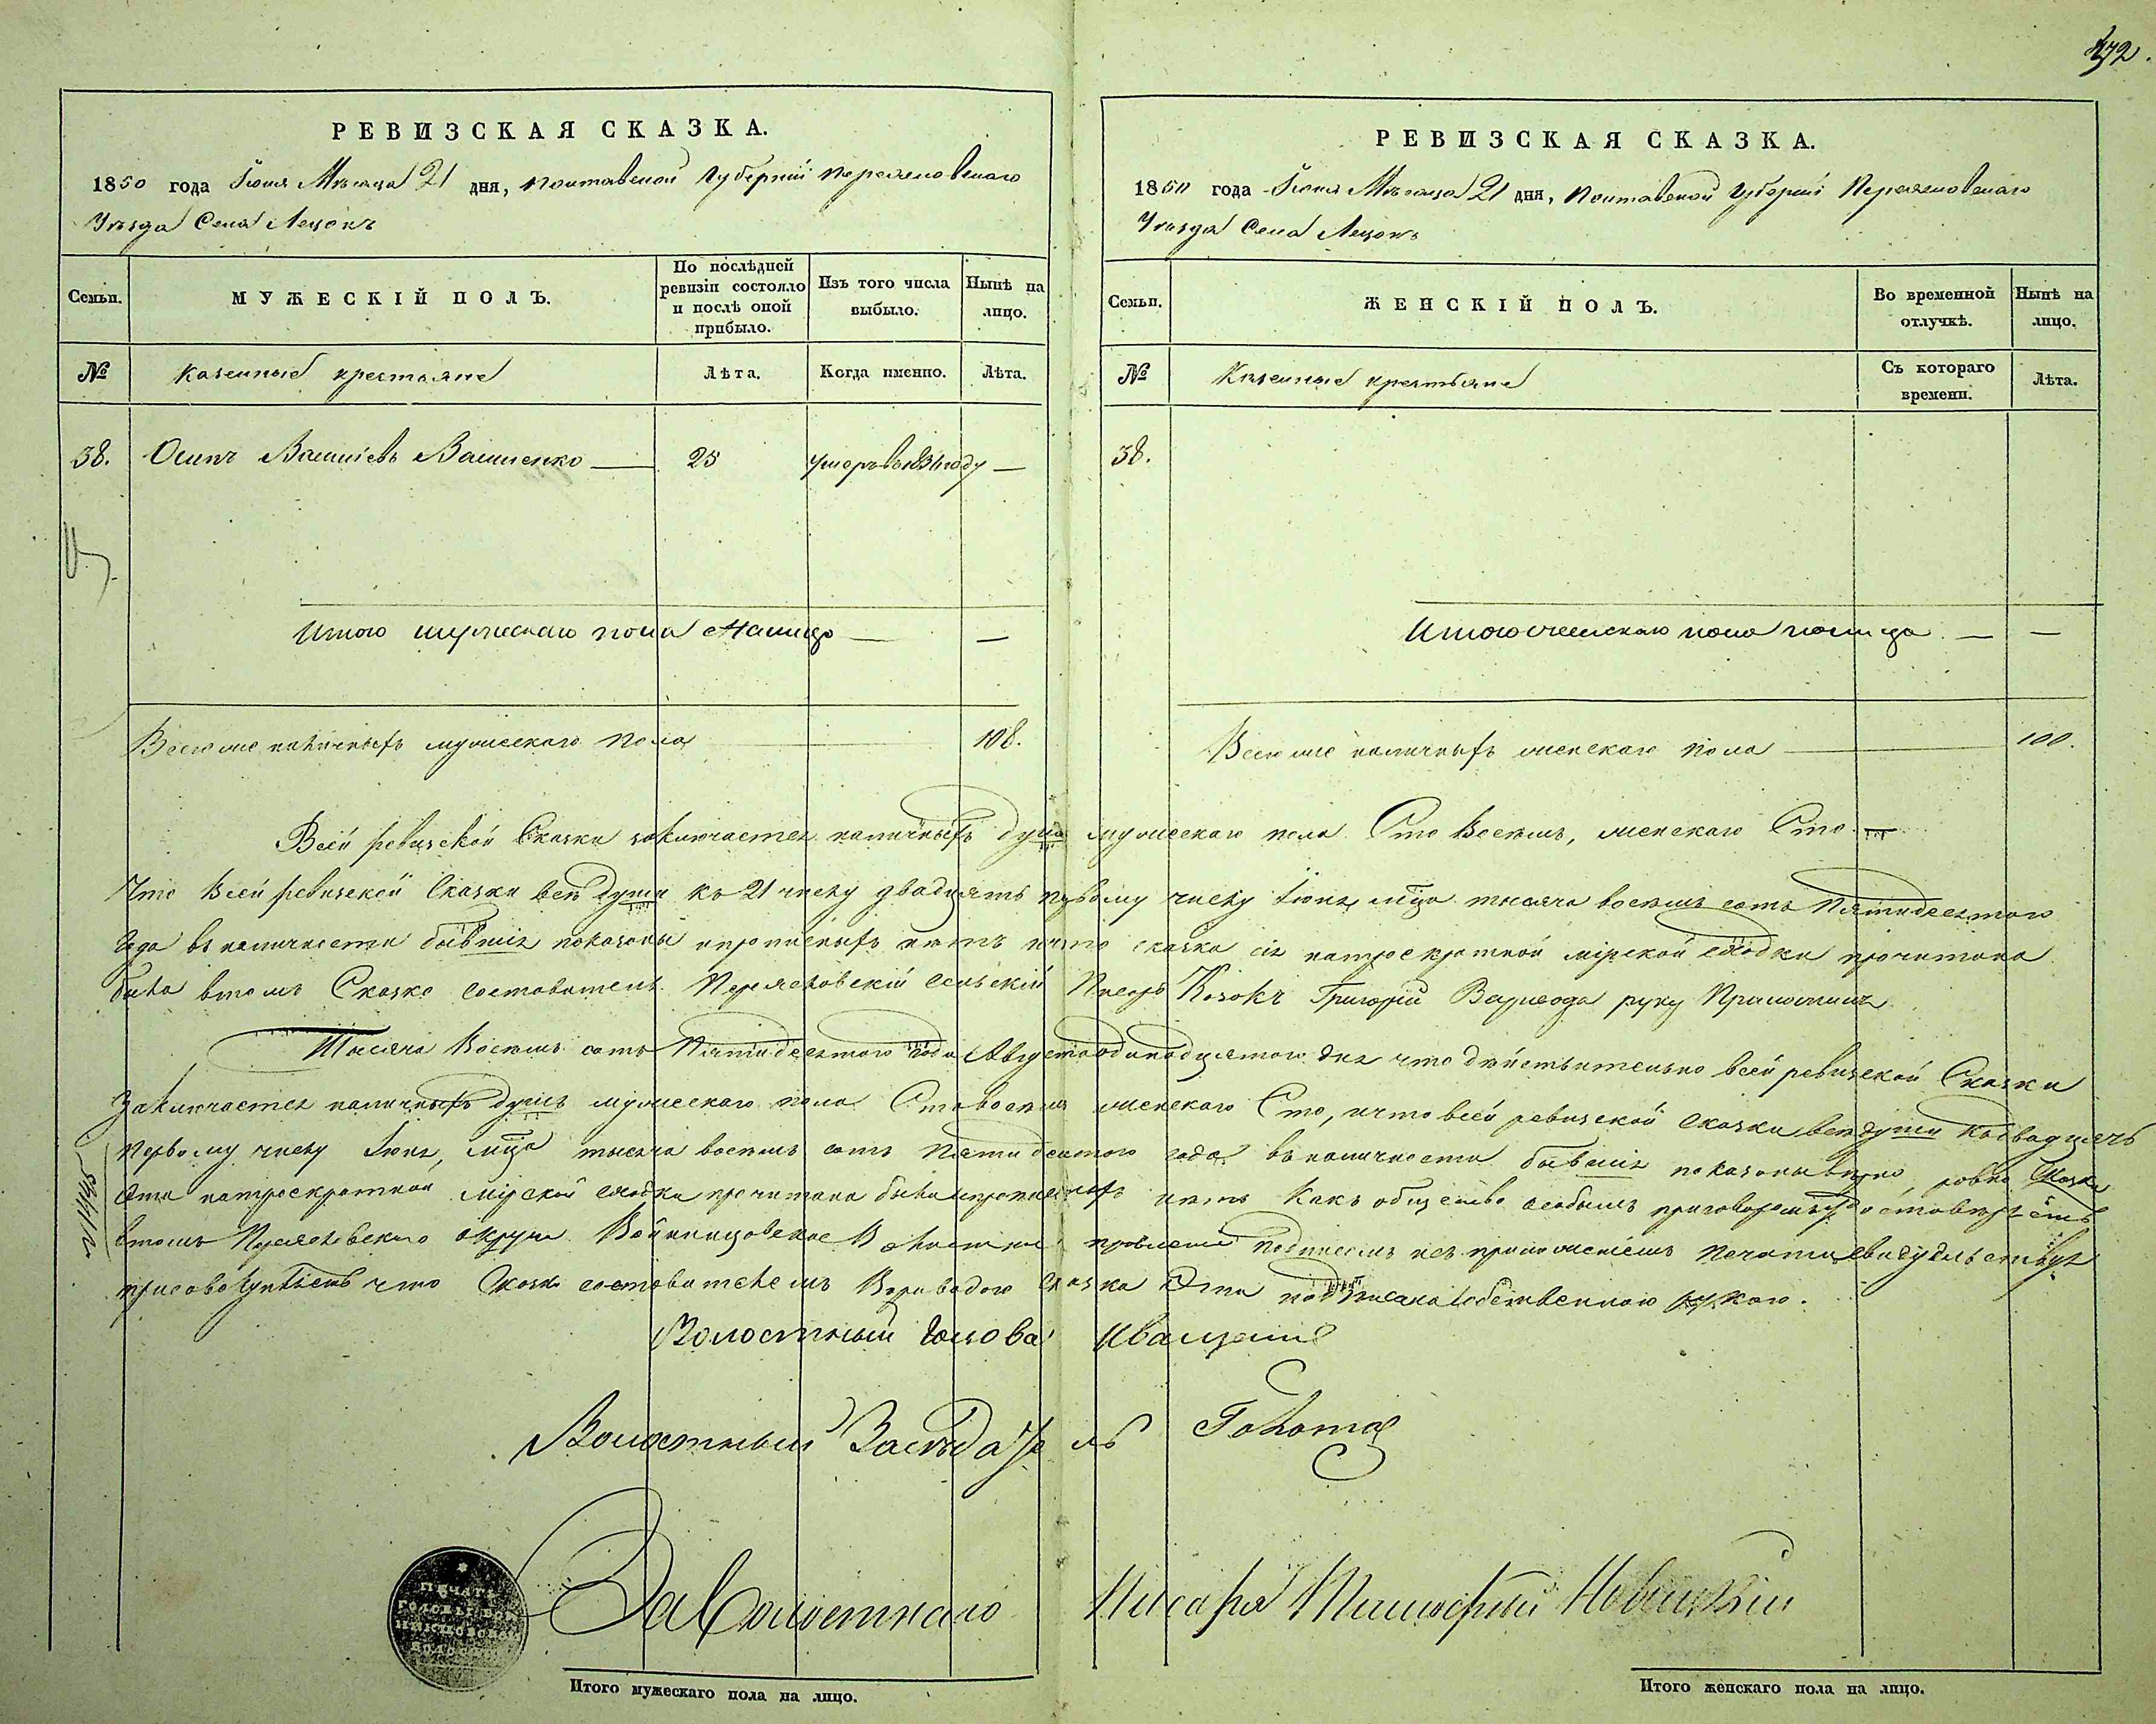 372.
РЕВИЗСКАЯ СКАЗКА.
1850 года Іюня Мѣсяца 21 дня, Полтавской Губерніи Переяславскаго
Уѣзда Села Лецокъ
Семьи.
МУЖЕСКІЙ ПОЛЪ.
По послѣдней ревизіи состояло и послѣ оной прибыло.
Изъ того числа выбыло.
Нынѣ на лицо.
№
Казенные крестьяне
Лѣта.
Когда именно.
Лѣта.
38. Осипъ Васильевъ Василенко — 25 умеръ въ 1836 году —
Итого мужескаго пола налицо — —
Всего же наличныхъ мужескаго пола 108.
РЕВИЗСКАЯ СКАЗКА.
1850 года Іюня Мѣсяца 21 дня, Полтавской Губерніи Переяславскаго
Уѣзда Села Лецокъ
Семьи.
ЖЕНСКІЙ ПОЛЪ.
Во временной отлучкѣ.
Нынѣ на лицо.
№
Казенные крестьяне
Съ котораго времени.
Лѣта.
38.
Итого женскаго пола налицо — —
Всего же наличныхъ женскаго пола 100.
Всей ревизской Сказки заключается наличныхъ душъ мужескаго пола Сто восемь, женскаго Сто —
Что всей ревизской Сказки всѣ души къ 21 числу двадцять первому числу Іюня мца тысяча восемь сотъ Пятидесятого
года въ наличности бывшія показаны и прописныхъ нѣтъ и что сказка сія на троекратной мірской сходки прочитана
была въ томъ Сказко составитель Переяславскій Сельскій Писарь Козакъ Григорій руку Приложилъ
Тысяча Восемь сотъ Пятидесятого года Августа одинадцятого дня что дѣйствительно всей ревизской Сказки
Заключается наличныхъ душъ мужескаго пола Сто восемь женскаго Сто, и что всей ревизской Сказки всѣ души
первому числу Іюня, мца тысяча восемь сотъ Пятидесятого года въ наличности бывшія показаны вѣрно, Сказка
эта на троекратной мірской сходки прочитана была и прописныхъ нѣтъ Какъ общество особымъ приговоромъ
въ томъ Переяславскаго округа Войнинцовское Волостное правленіе подписомъ и съ приложеніемъ печати свидѣтельствуя
присовокупляетъ что Сказко составителемъ Сказка Эта подписана собственною рукою.
Волостный Голова Иващенко
Волостный Засѣдатель Голота
За Волостнаго Писаря Тимофтий Новицкій
ПЕЧАТЬ
ГОЛОВЫ
Итого мужескаго пола на лицо.
Итого женскаго пола на лицо.